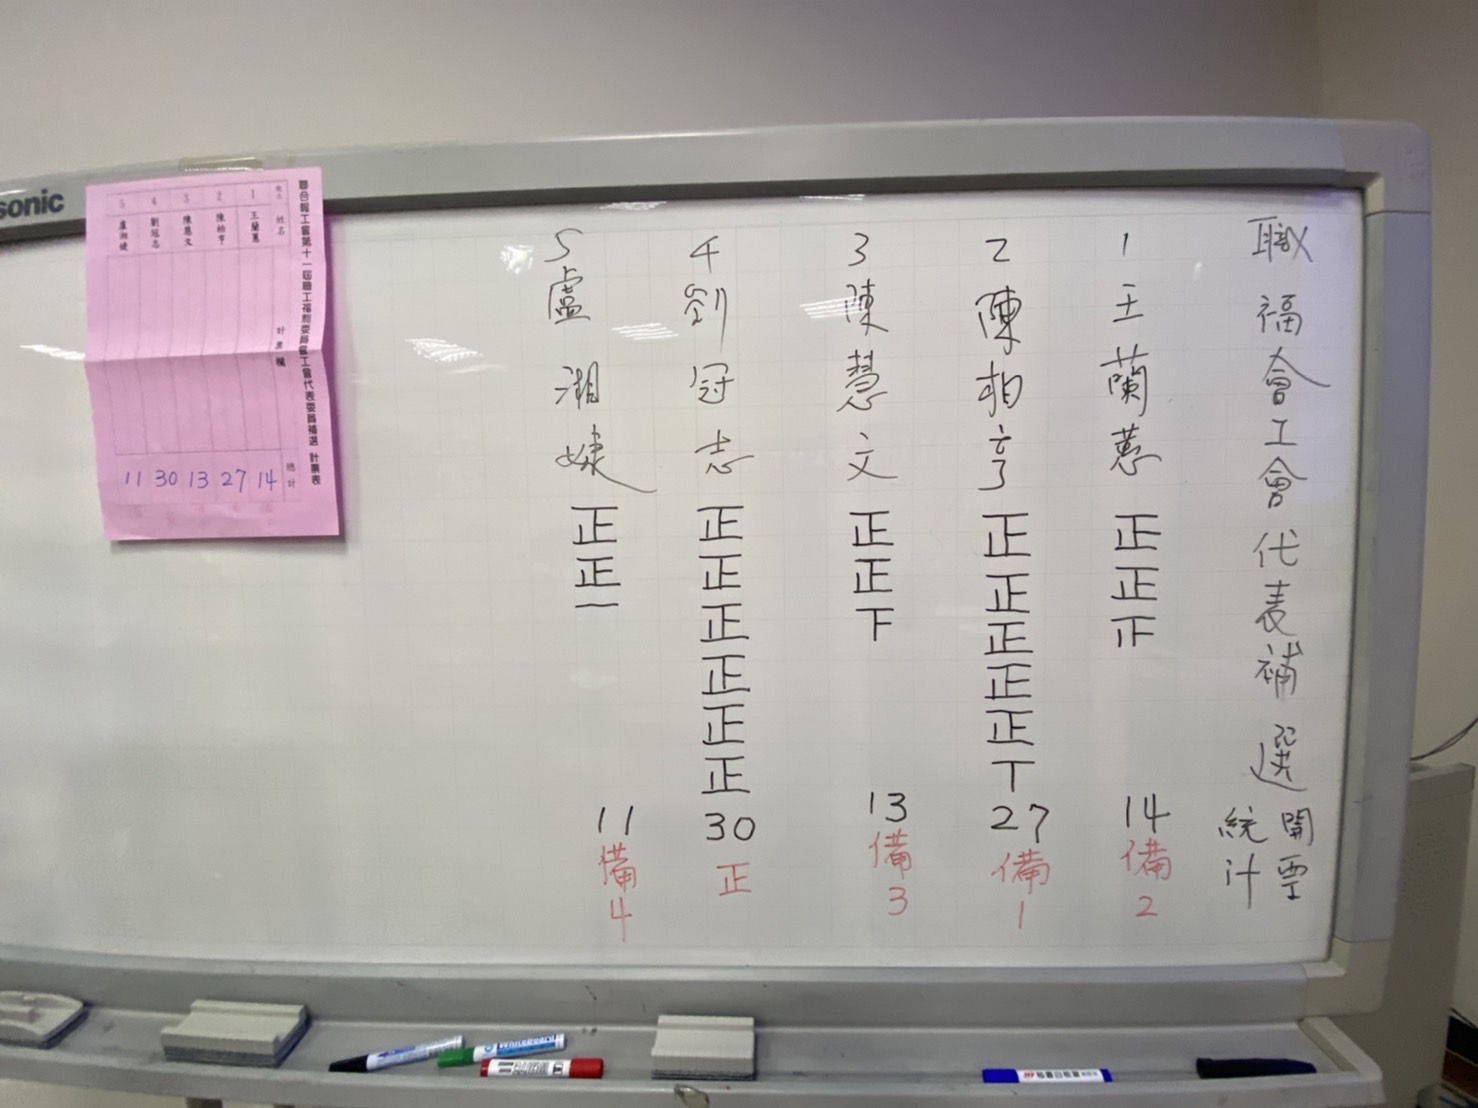 職福會工會代表補選
開票
統計
1 王蘭蕙 正正正 14 備2
2 陳柏亨 正正正正正丅 27 備1
3 陳慧文 正正下 13 備3
4 劉冠志 正正正正正正 30 正
5 盧湘婕 正正一 11 備4
sonic
聯合報工會第十一屆職工福利委員會工會代表委員補選 計票表
姓名 計票欄 總計
1 王蘭蕙 14
2 陳柏亨 27
3 陳慧文 13
4 劉冠志 30
5 盧湘婕 11
WhiteBoard